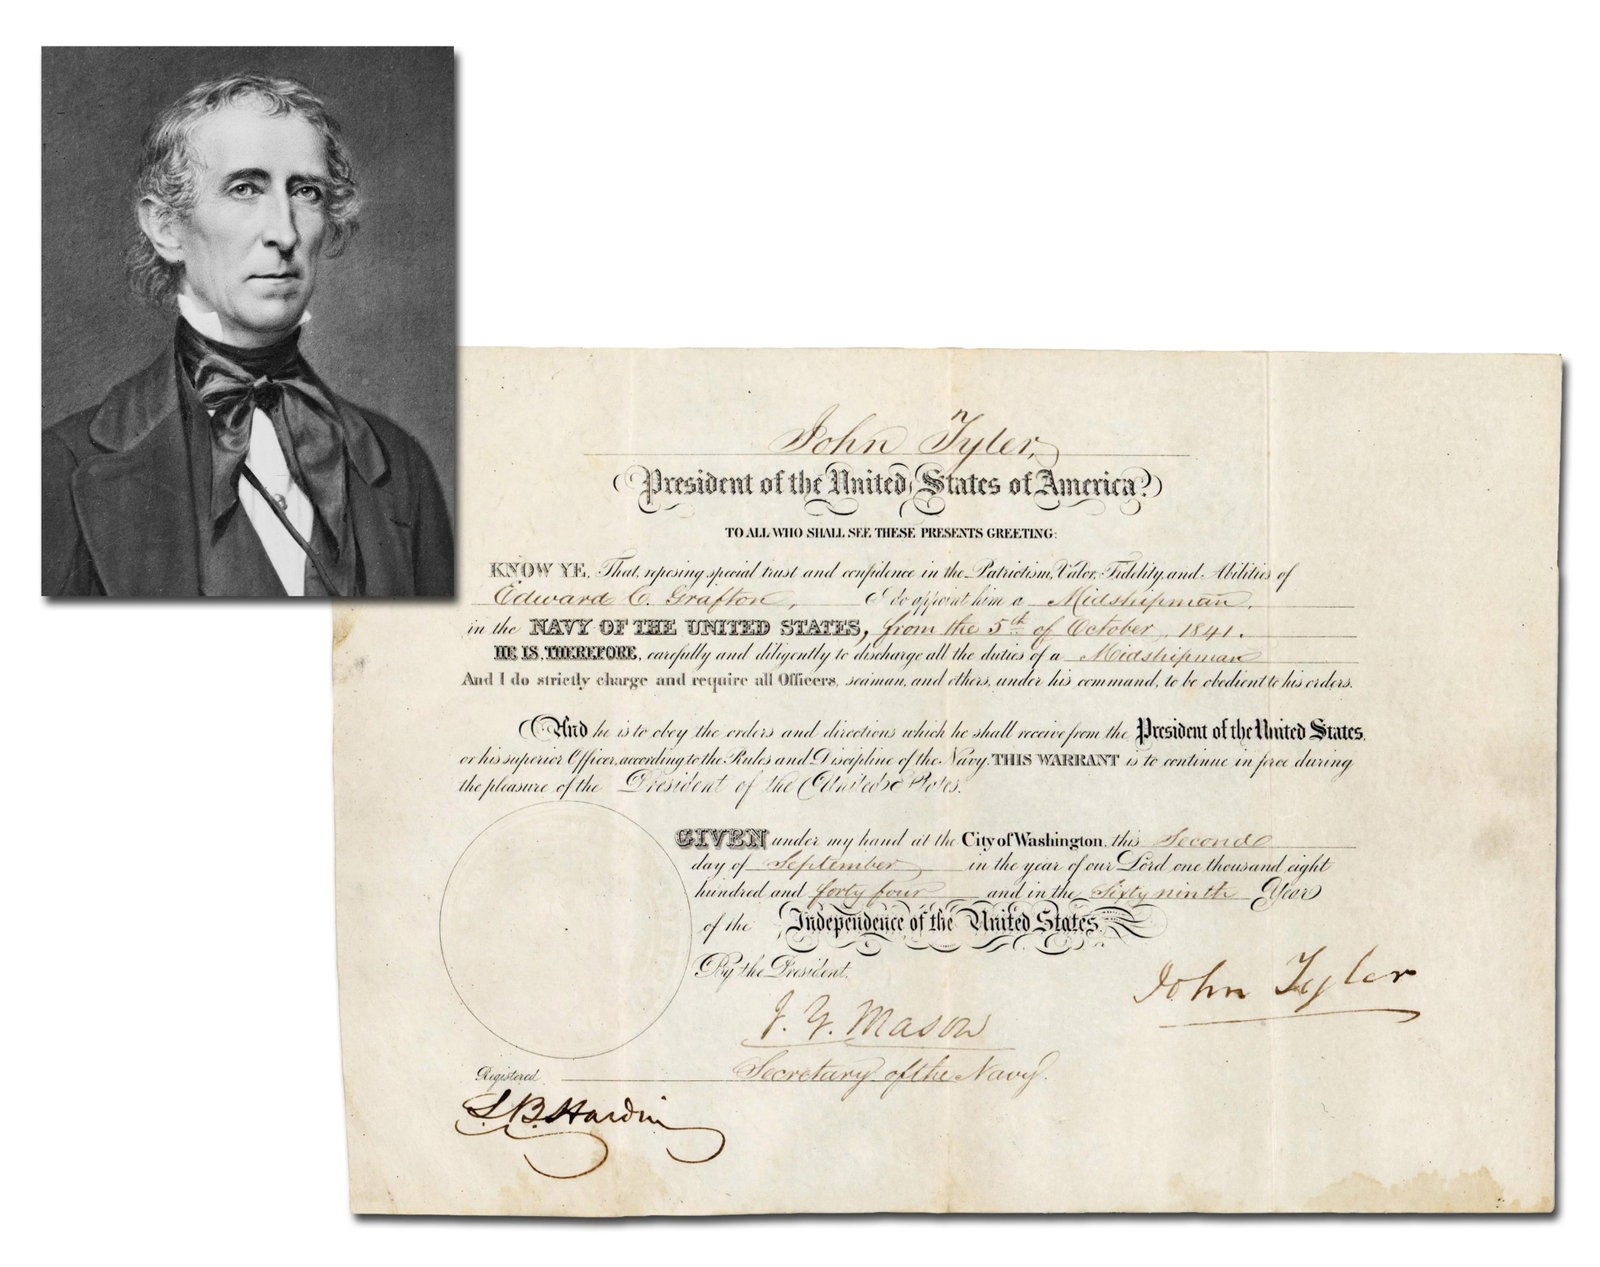 John Tyler,
President of the United States of America.
TO ALL WHO SHALL SEE THESE PRESENTS GREETING:
KNOW YE, That, reposing special trust and confidence in the Patriotism, Valor, Fidelity, and Abilities of
Edward C. Grafton, I do appoint him a Midshipman,
in the NAVY OF THE UNITED STATES, from the 5th of October, 1841.
HE IS, THEREFORE, carefully and diligently to discharge all the duties of a Midshipman
And I do strictly charge and require all Officers, seaman, and others, under his command, to be obedient to his orders.
And he is to obey the orders and directions which he shall receive from the President of the United States,
or his superior Officer, according to the Rules and Discipline of the Navy. THIS WARRANT is to continue in force during
the pleasure of the President of the United States.
GIVEN under my hand at the City of Washington, this Second
day of September in the year of our Lord one thousand eight
hundred and forty four and in the Sixty ninth Year
of the Independence of the United States.
By the President,
John Tyler
J. Y. Mason
Secretary of the Navy.
Registered
L. B. Hardin